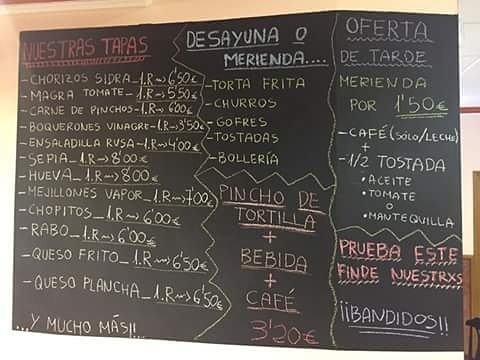 NUESTRAS TAPAS
-CHORIZOS SIDRA-1.R→6'50€
-MAGRA TOMATE-1.R→5'50€
-CARNE DE PINCHOS-1.R→6'00€
-BOQUERONES VINAGRE-1.R→3'50€
-ENSALADILLA RUSA-1.R→4'00€
-SEPIA-1.R→8'00€
-HUEVA_1.R→8'00€
-MEJILLONES VAPOR_1.R→7'00€
-CHOPITOS_1.R→6'00€
-RABO_1.R→6'00€
-QUESO FRITO_1.R→6'50€
-QUESO PLANCHA_1.R→6'50€
...Y MUCHO MÁS!!
DESAYUNA O
MERIENDA....
-TORTA FRITA
-CHURROS
-GOFRES
-TOSTADAS
-BOLLERÍA
PINCHO DE
TORTILLA
+
BEBIDA
+
CAFÉ
3'20€
OFERTA
DE TARDE
MERIENDA
POR 1'50€
-CAFÉ (SOLO/LECHE)
+
-1/2 TOSTADA
•ACEITE
•TOMATE
O
•MANTEQUILLA
PRUEBA ESTE
FINDE NUESTRXS
¡¡BANDIDOS!!